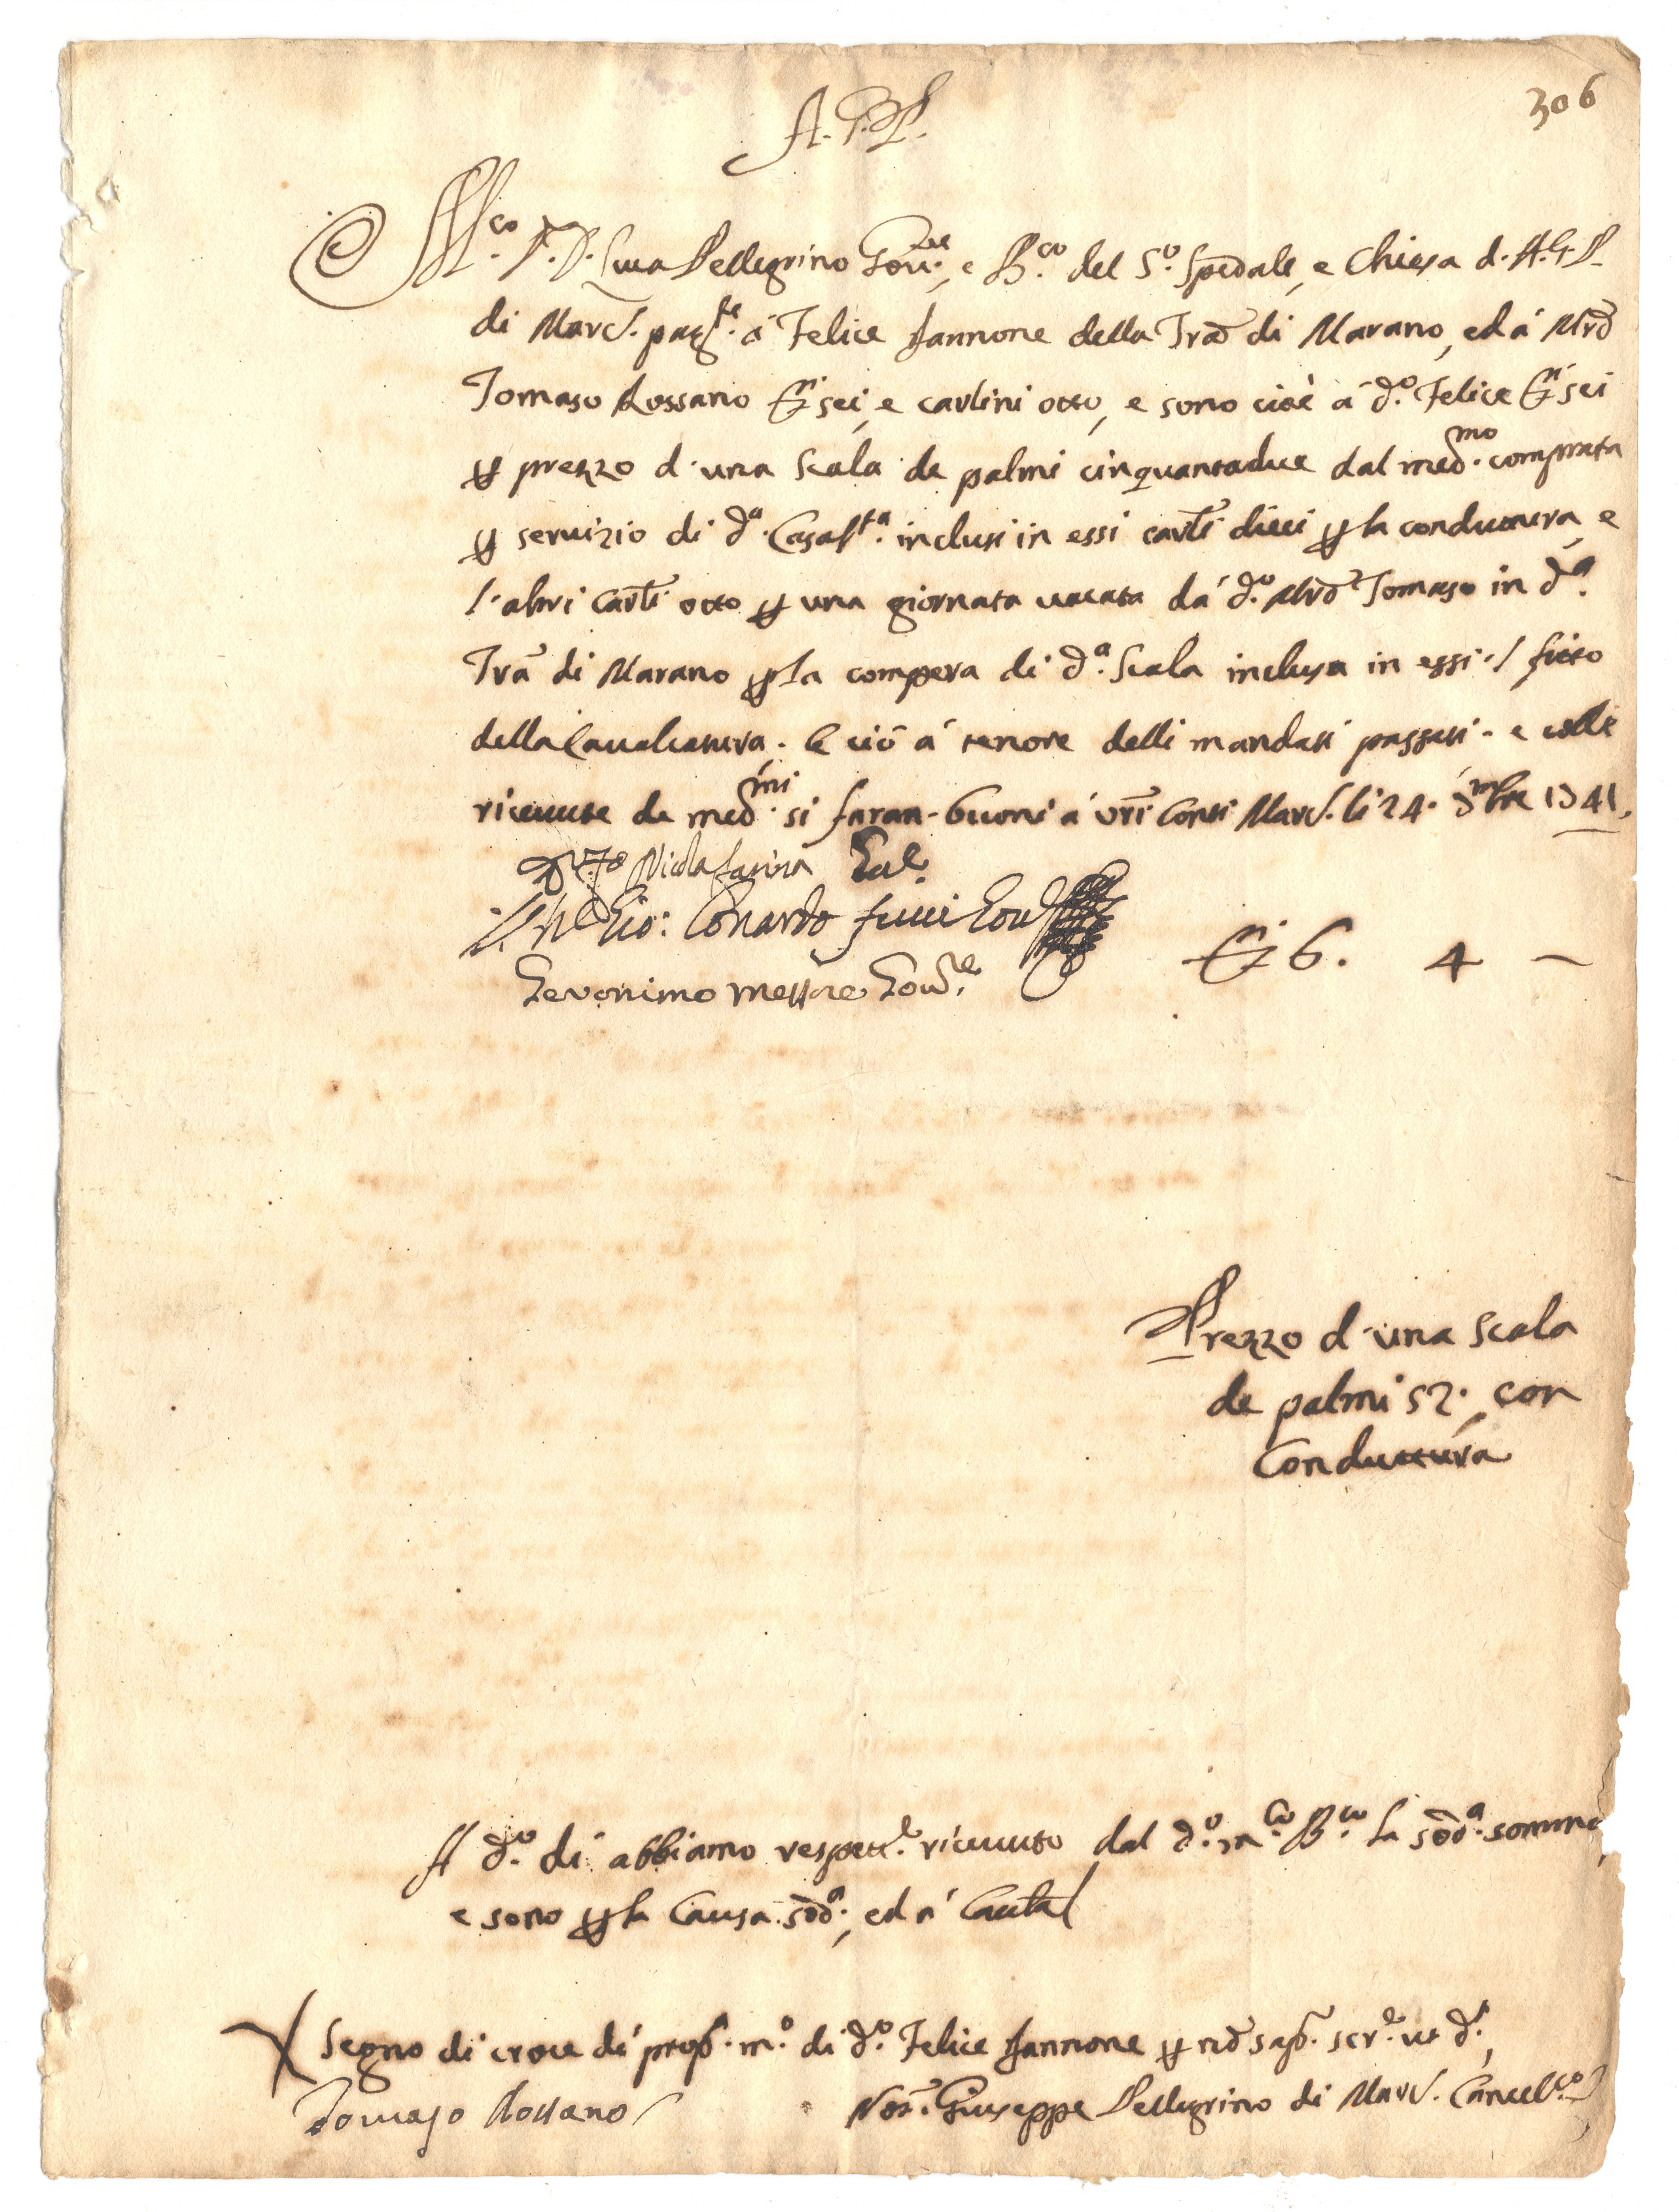 306
A. G. P.
M.co P. D. Luca Pellegrino Gov.re, e B.co del S.o Spedale, e Chiesa d. A. G. P.
di Marc. pag.te á Felice Iannone della Trã di Marano, ed á Mrõ
Tomaso Rossano D.ti sei, e carlini otto, e sono cioè á d.o Felice D.ti sei
p prezzo d'una Scala de palmi cinquantadue dal med.mo comprata
p servizio di d.a Casa S.ta inclusi in essi carl.i dieci p la conduttura, e
l'altri carl.i otto p una giornata vacata dá d.o Mrõ Tomaso in d.a
Trã di Marano p la compera di d.a Scala inclusa in essi l'fitto
della Cavalcatura. E ciò á tenore delli mandati passati. e colle
ricevute de med.mi si faran buoni á vrĩ Conti Marc. li 24. 1741.
Nicola Farina
Gio: Gov
Geronimo Gov.re
D.ti 6. 4 –
Prezzo d'una Scala
de palmi 52. con
Conduttura
A d.o di abbiamo respett.e ricevuto dal d.o m.co B.co la sõd.a somma,
e sono p la Causa sõd.a, ed á Cautel
Segno di croce di prop. m.o di d.o Felice Iannone p nõ sap. scr.e ut d.r,
Tomaso Rossano
Not. Giuseppe Pellegrino di Marc. Cancell.o